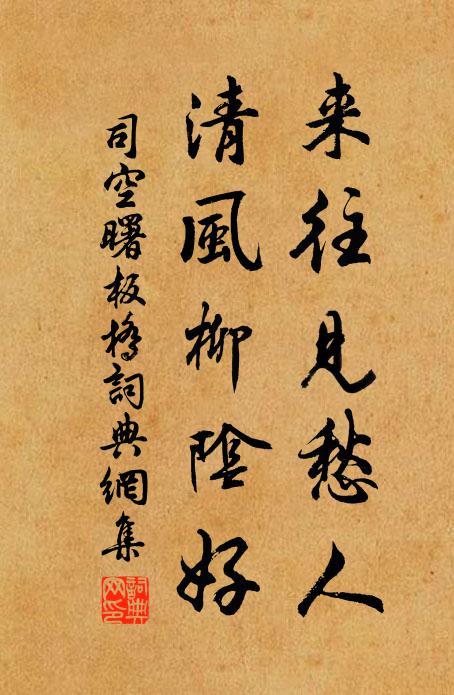 来往見愁人
清風柳陰好
司空曙板橋詞典網集
詞典
网印